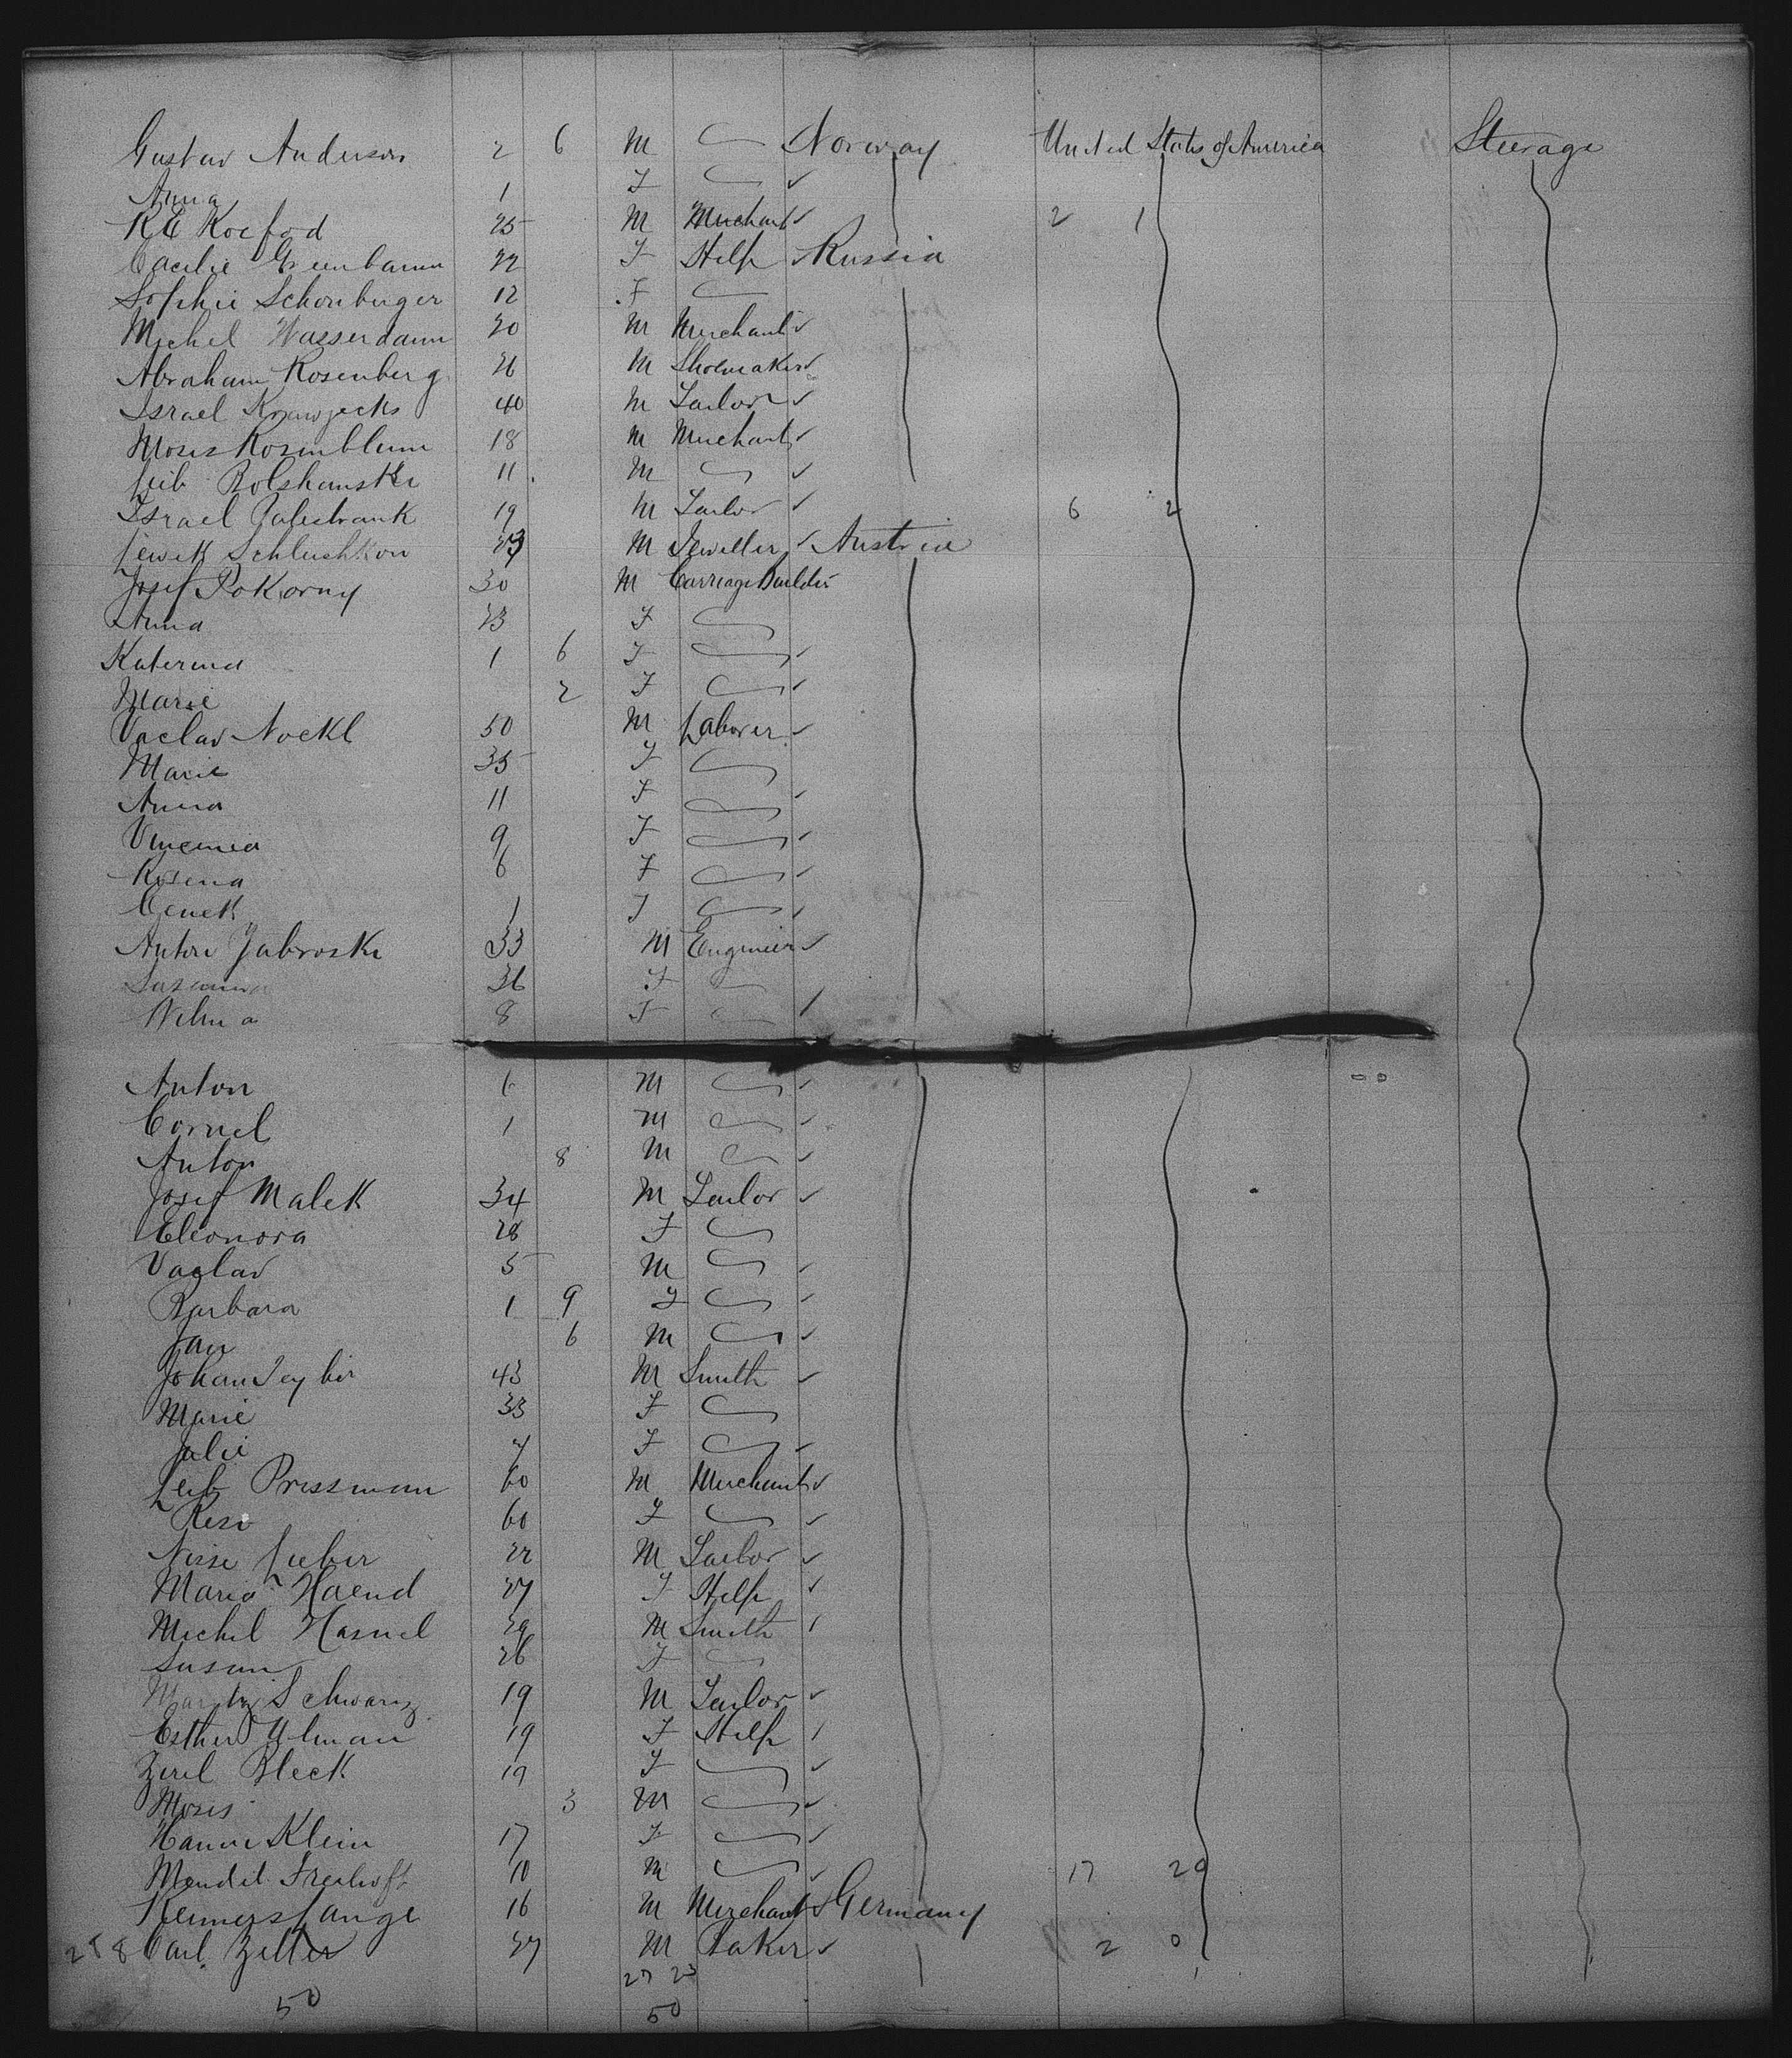 Gustav Anderson 2 6 M Norway United States of America Steerage
Anna 1 F
K E Koefod 25 M Merchant 2 1
Cacilie Grunbaum 22 F Help Russia
Sophie Schonberger 12 F
Michel Wasserdam 20 M Merchant
Abraham Rosenberg 26 M Shoemaker
Israel 40 M Tailor
Moses Rosenblum 18 M Merchant
Leib 11 M
Israel 19 M Tailor 6 2
M Jeweller Austria
Josef Pokorny 30 M Carriage Builder
Anna 23 F
Katerina 1 6 F
Marie 2 F
Vaclav Nockl 50 M Laborer
Marie 35 F
Anna 11 F
9 F
Rosena 6 F
Cenek 1 F
Anton Jabroski 33 M Engineer
Susanna 36 F
Velma 8 F
Anton 6 M
Cornel 1 M
Anton 8 M
Josef Malek 34 M Tailor
Eleonora 28 F
Vaclav 5 M
Barbara 1 9 F
Jan 6 M
Johan 43 M Smith
Marie 33 F
Julie 7 F
Leib Pressman 60 M Merchant
Resi 60 F
Nisse Lieber 22 M Tailor
Maria Haend 27 F Help
Michel Hasnel 29 M Smith
Susan 26 F
Moritz Schwarz 19 M Tailor
Esther Ulman 19 F Help
Zirel Bleck 19 F
Moses 3 M
Hanni Klein 17 F
Mendel 10 M 17 20
Reimers Lange 16 M Merchant Germany
258 Carl Zeller 27 M Baker 2 0
27 23
50 50